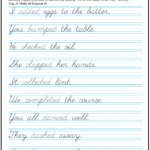 I added eggs to the batter.
You bumped the table.
He checked the oil.
She clapped her hands.
It collected lint.
We completed the course.
You all danced well.
They dashed away.